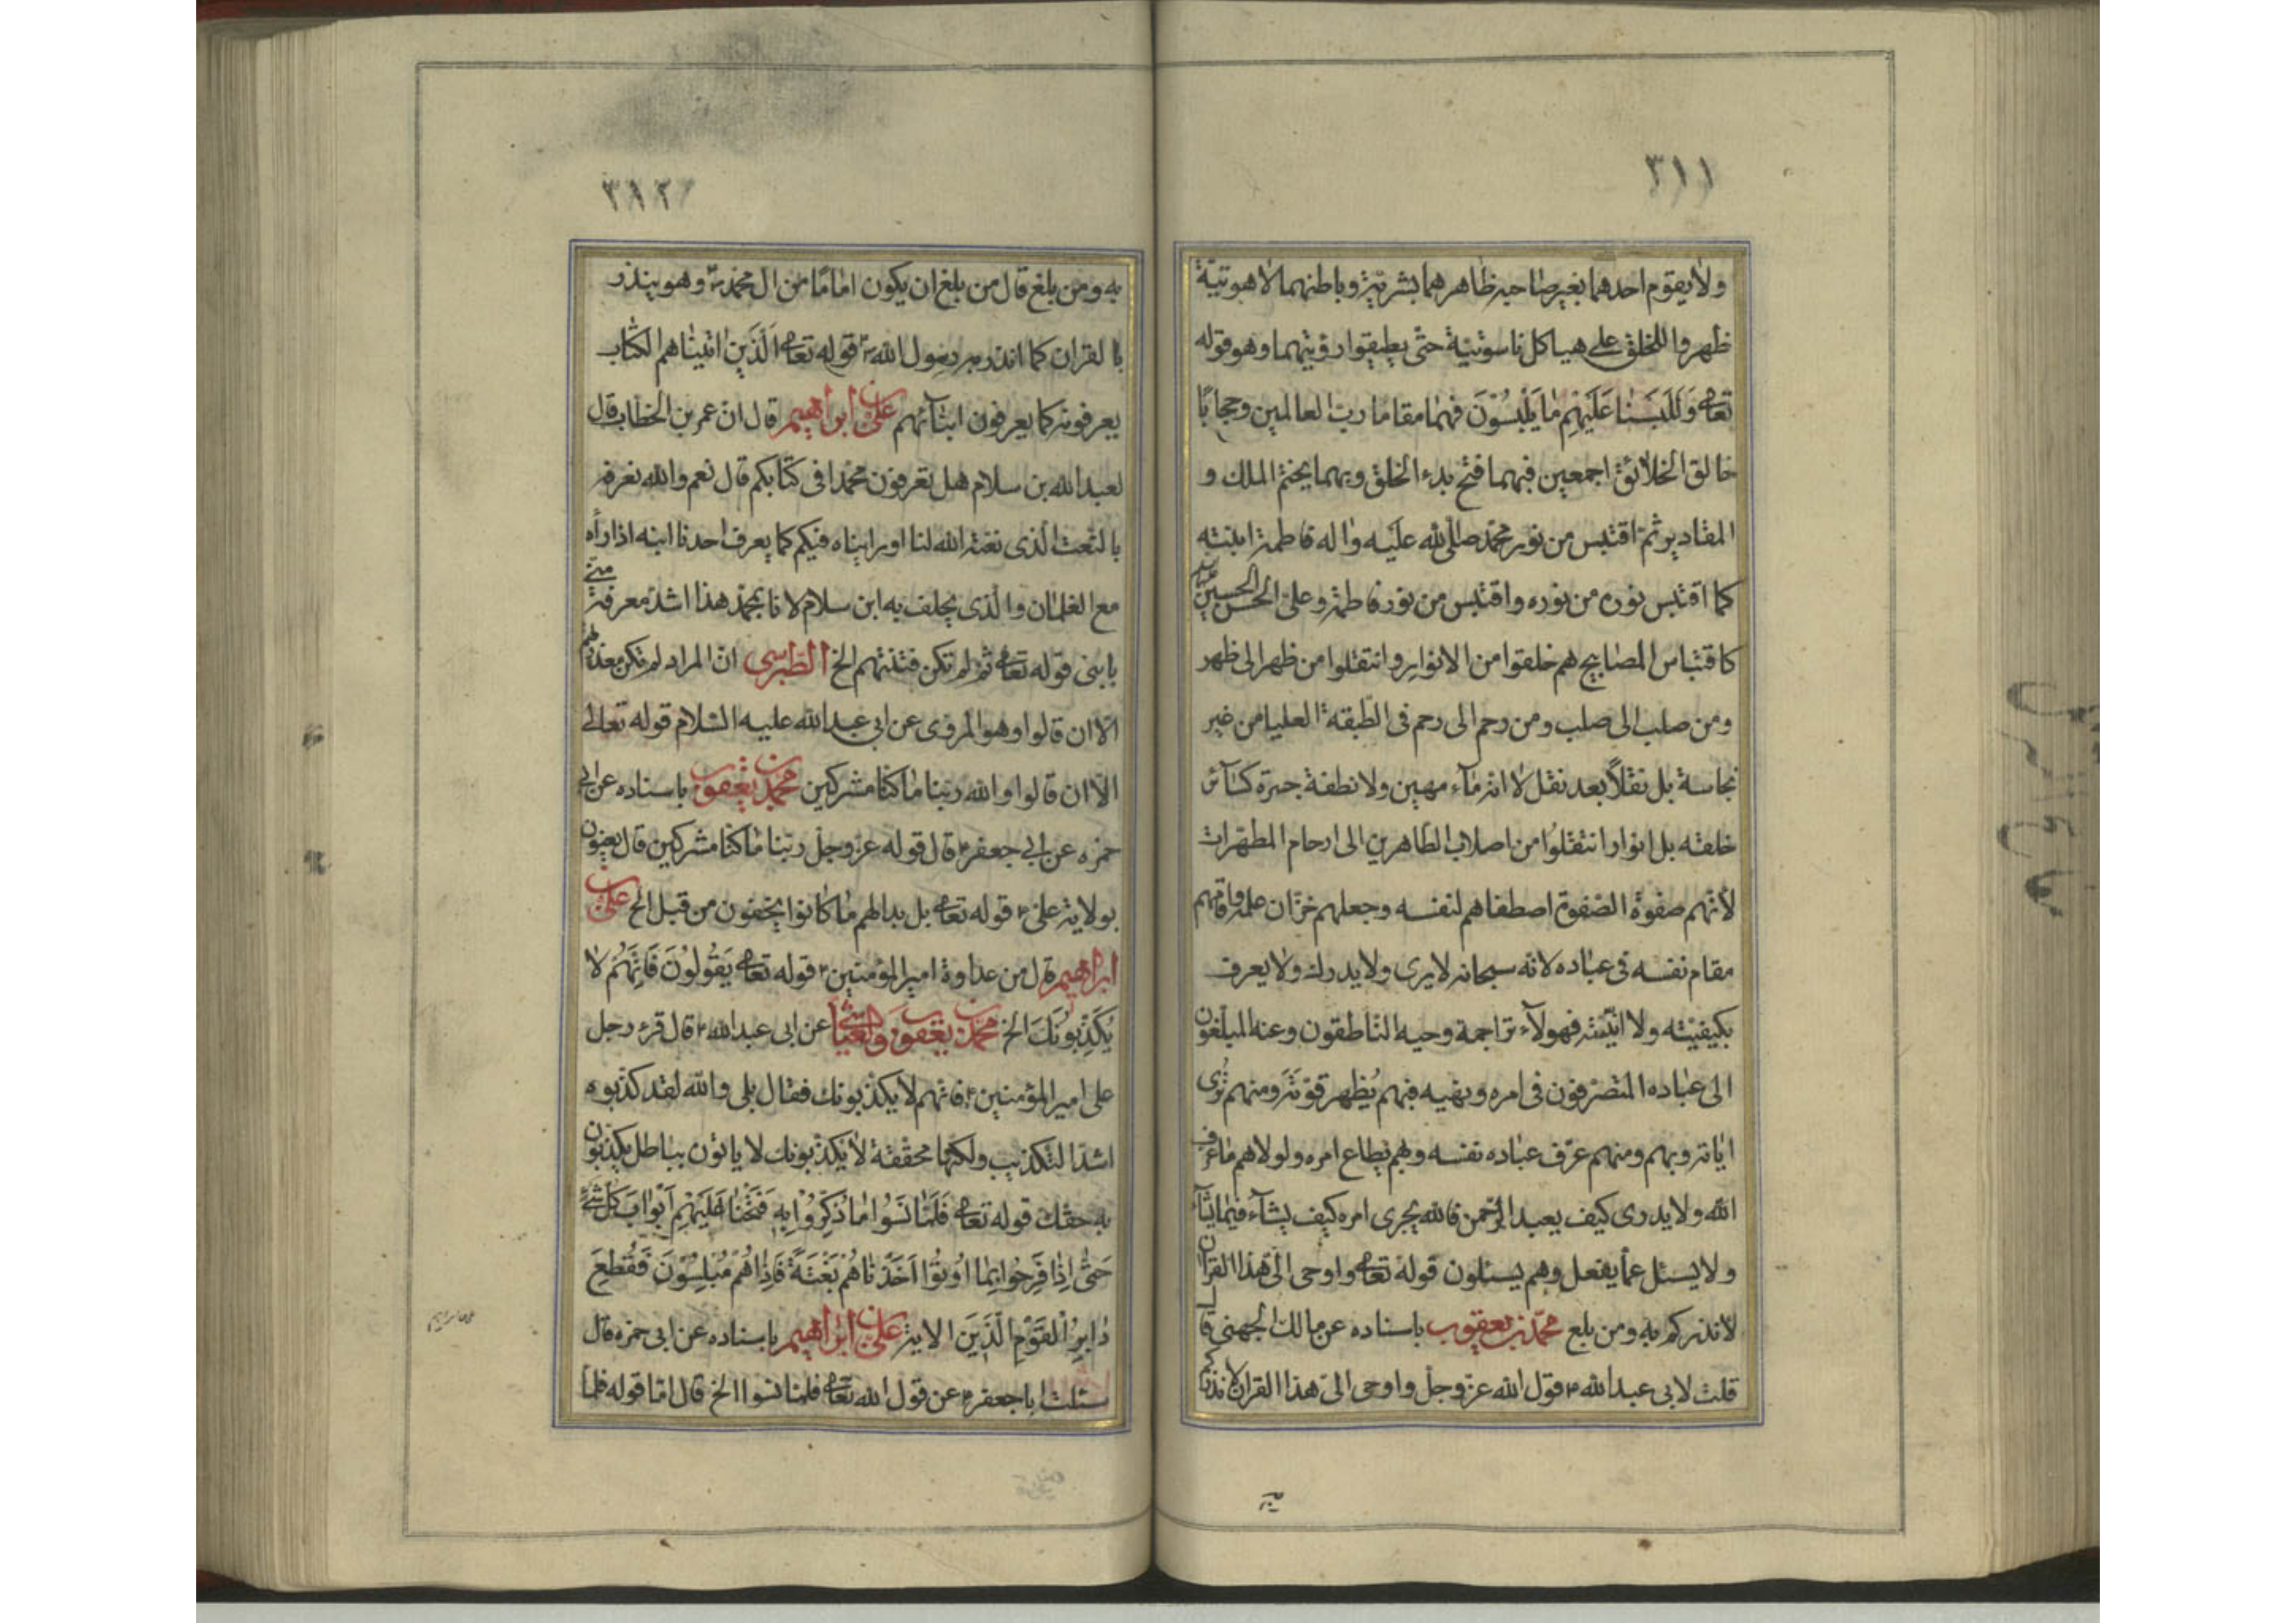 ٣١١
ولا يقوم احدهما بغير صاحبه ظاهرهما بشرية وباطنهما لاهوتية
ظهروا للخلق على هياكل ناسوتية حتى يطيقوا رؤيتهما وهو قوله
تعالى وَلَلَبَسْنا عَلَيْهِم مٰا يَلْبِسُوْنَ فهما مقاما رب العالمين وحجابا
خالق الخلائق اجمعين فبهما فتح بدء الخلق وبهما يختم الملك و
المقادير ثم اقتبس من نور محمد صلى الله عليه واله فاطمة ابنته
كما اقتبس نوره من نوره واقتبس من نور فاطمة وعلى الحسن والحسين
كاقتباس المصابيح هم خلقوا من الانوار وانتقلوا من ظهر الى ظهر
ومن صلب الى صلب ومن رحم الى رحم فى الطبقة العليا من غير
نجاسة بل نقلاً بعد نقل لا انه ماء مهين ولا نطفة جسرة كسائر
خلقه بل انوار انتقلوا من اصلاب الطاهرين الى ارحام المطهرات
لأنهم صفوة الصفوة اصطفاهم لنفسه وجعلهم خزان علمه واقامهم
مقام نفسه فى عباده لانه سبحانه لا يرى ولا يدرك ولا يعرف
بكيفيته ولا انيته فهولآء تراجمة وحيه الناطقون وعنه المبلغون
الى عباده المتصرفون فى امره ونهيه فبهم يُظهر قوته ومنهم تُرى
اياته وبهم ومنهم عرّف عباده نفسه وبهم يطاع امره ولولاهم ما عرف
الله ولا يدرى كيف يعبد الرحمن فالله يجرى امره كيف يشآء فيما يشآء
ولا يسئل عما يفعل وهم يسئلون قوله تعالى واوحى الىّ هذا القران
لانذركم به ومن بلغ محمد بن يعقوب باسناده عن مالك الجهنى قال
قلت لابى عبد الله ع قول الله عز وجل واوحى الىّ هذا القران لانذركم
به
٣١٢
به ومن بلغ قال من بلغ ان يكون اماما من ال محمد ص وهو ينذر
بالقران كما انذر به رسول الله ص قوله تعالى اَلَّذَيِنَ اتيناهم الكتاب
يعرفونه كما يعرفون ابنائهم على بن ابراهيم قال ان عمر بن الخطاب قال
لعبد الله بن سلام هل تعرفون محمدا فى كتابكم قال نعم والله نعرفه
بالنعت الذى نعته الله لنا اور ايناه فيكم كما يعرف احدنا ابنه اذا رأه
مع الغلمان والذى يحلف به ابن سلام لانا بمحمد هذا اشد معرفة منّى
بابنى قوله تعالى ثم لم تكن فتنتهم الخ الطبرسى ان المراد لم تكن معذرتهم
الّا ان قالوا وهو المروى عن ابى عبد الله عليه السلام قوله تعالى
الّا ان قالوا والله ربنا ما كنا مشركين محمد بن يعقوب باسناده عن ابى
حمزه عن ابى جعفر ع قال قوله عز وجل ربنا ما كنا مشركين قال يعنون
بولاية على ع قوله تعالى بل بدا لهم ما كانوا يخفون من قبل الخ على بن
ابراهيم قال من عداوة امير المؤمنين ع قوله تعالى يَقُولُوْنَ فَاِنَّهُمْ لا
يُكَذِّبُونَكَ الخ محمد بن يعقوب والعياشى عن ابى عبد الله ع قال قرء رجل
على امير المؤمنين ع فانهم لا يكذبونك فقال بلى والله لقد كذبوه
اشد التكذيب ولكنها مخففة لا يكذبونك لا ياتون بباطل يكذبون
به حقك قوله تعالى فَلَمّا نَسُوا مٰا ذُكِّرُوْا بِهِ فَتَحْنا عَلَيْهِمْ اَبْوابَ كل شئ
حَتّٰى اِذٰا فَرِحُوا بِمٰا اُوتُوا اَخَذْناهُمْ بَغْتَةً فَاِذٰا هُمْ مُبْلِسُوْنَ فَقُطِعَ
دٰابِرُ الْقَوْمِ الَّذَيِنَ الاية على بن ابراهيم باسناده عن ابى حمزه قال
سئلت ابا جعفر ع عن قول الله تعالى فلما نسوا الخ قال اما قوله فلما